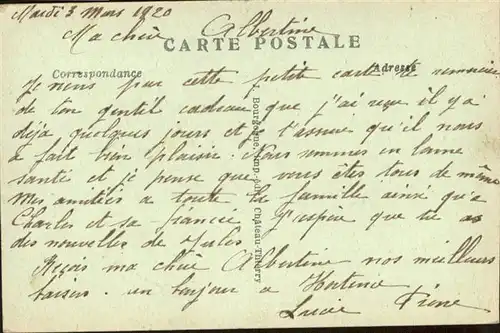 Mardi 3 Mars 1920
Ma chère Albertine
CARTE POSTALE
Correspondance
Adresse
Je viens par cette petite carte te remercier
de ton gentil cadeau que j'ai reçu il y a
déjà quelques jours et je t'assure qu'il nous
a fait bien plaisir. Nous sommes en bonne
santé et je pense que vous êtes tous de même
Mes amitiés a toute la famille ainsi qu'a
Charles et sa fiancée J'espère que tu as
des nouvelles de Jules.
Reçois ma chère Albertine nos meilleurs
baisers. un bonjour a Hortense
Lucie
Bourgogne, Château-Thierry